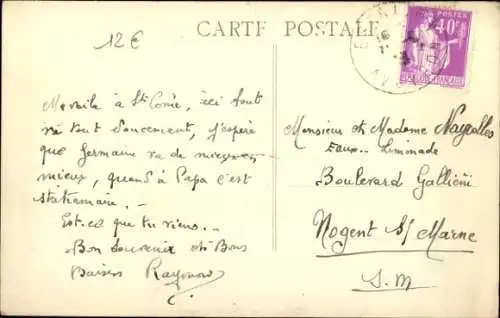 12 €
CARTE POSTALE
POSTES
40c
à St Come, ici tout
va tout doucement, j'espère
que Germaine va de mieux en
mieux, quand à Papa c'est
stationnaire. -
Est-ce que tu viens. -
Bon Souvenir et Bons
Baisers Raymond
Monsieur et Madame
Eaux.. Limonade
Boulevard Galliéni
Nogent S/ Marne
S. M